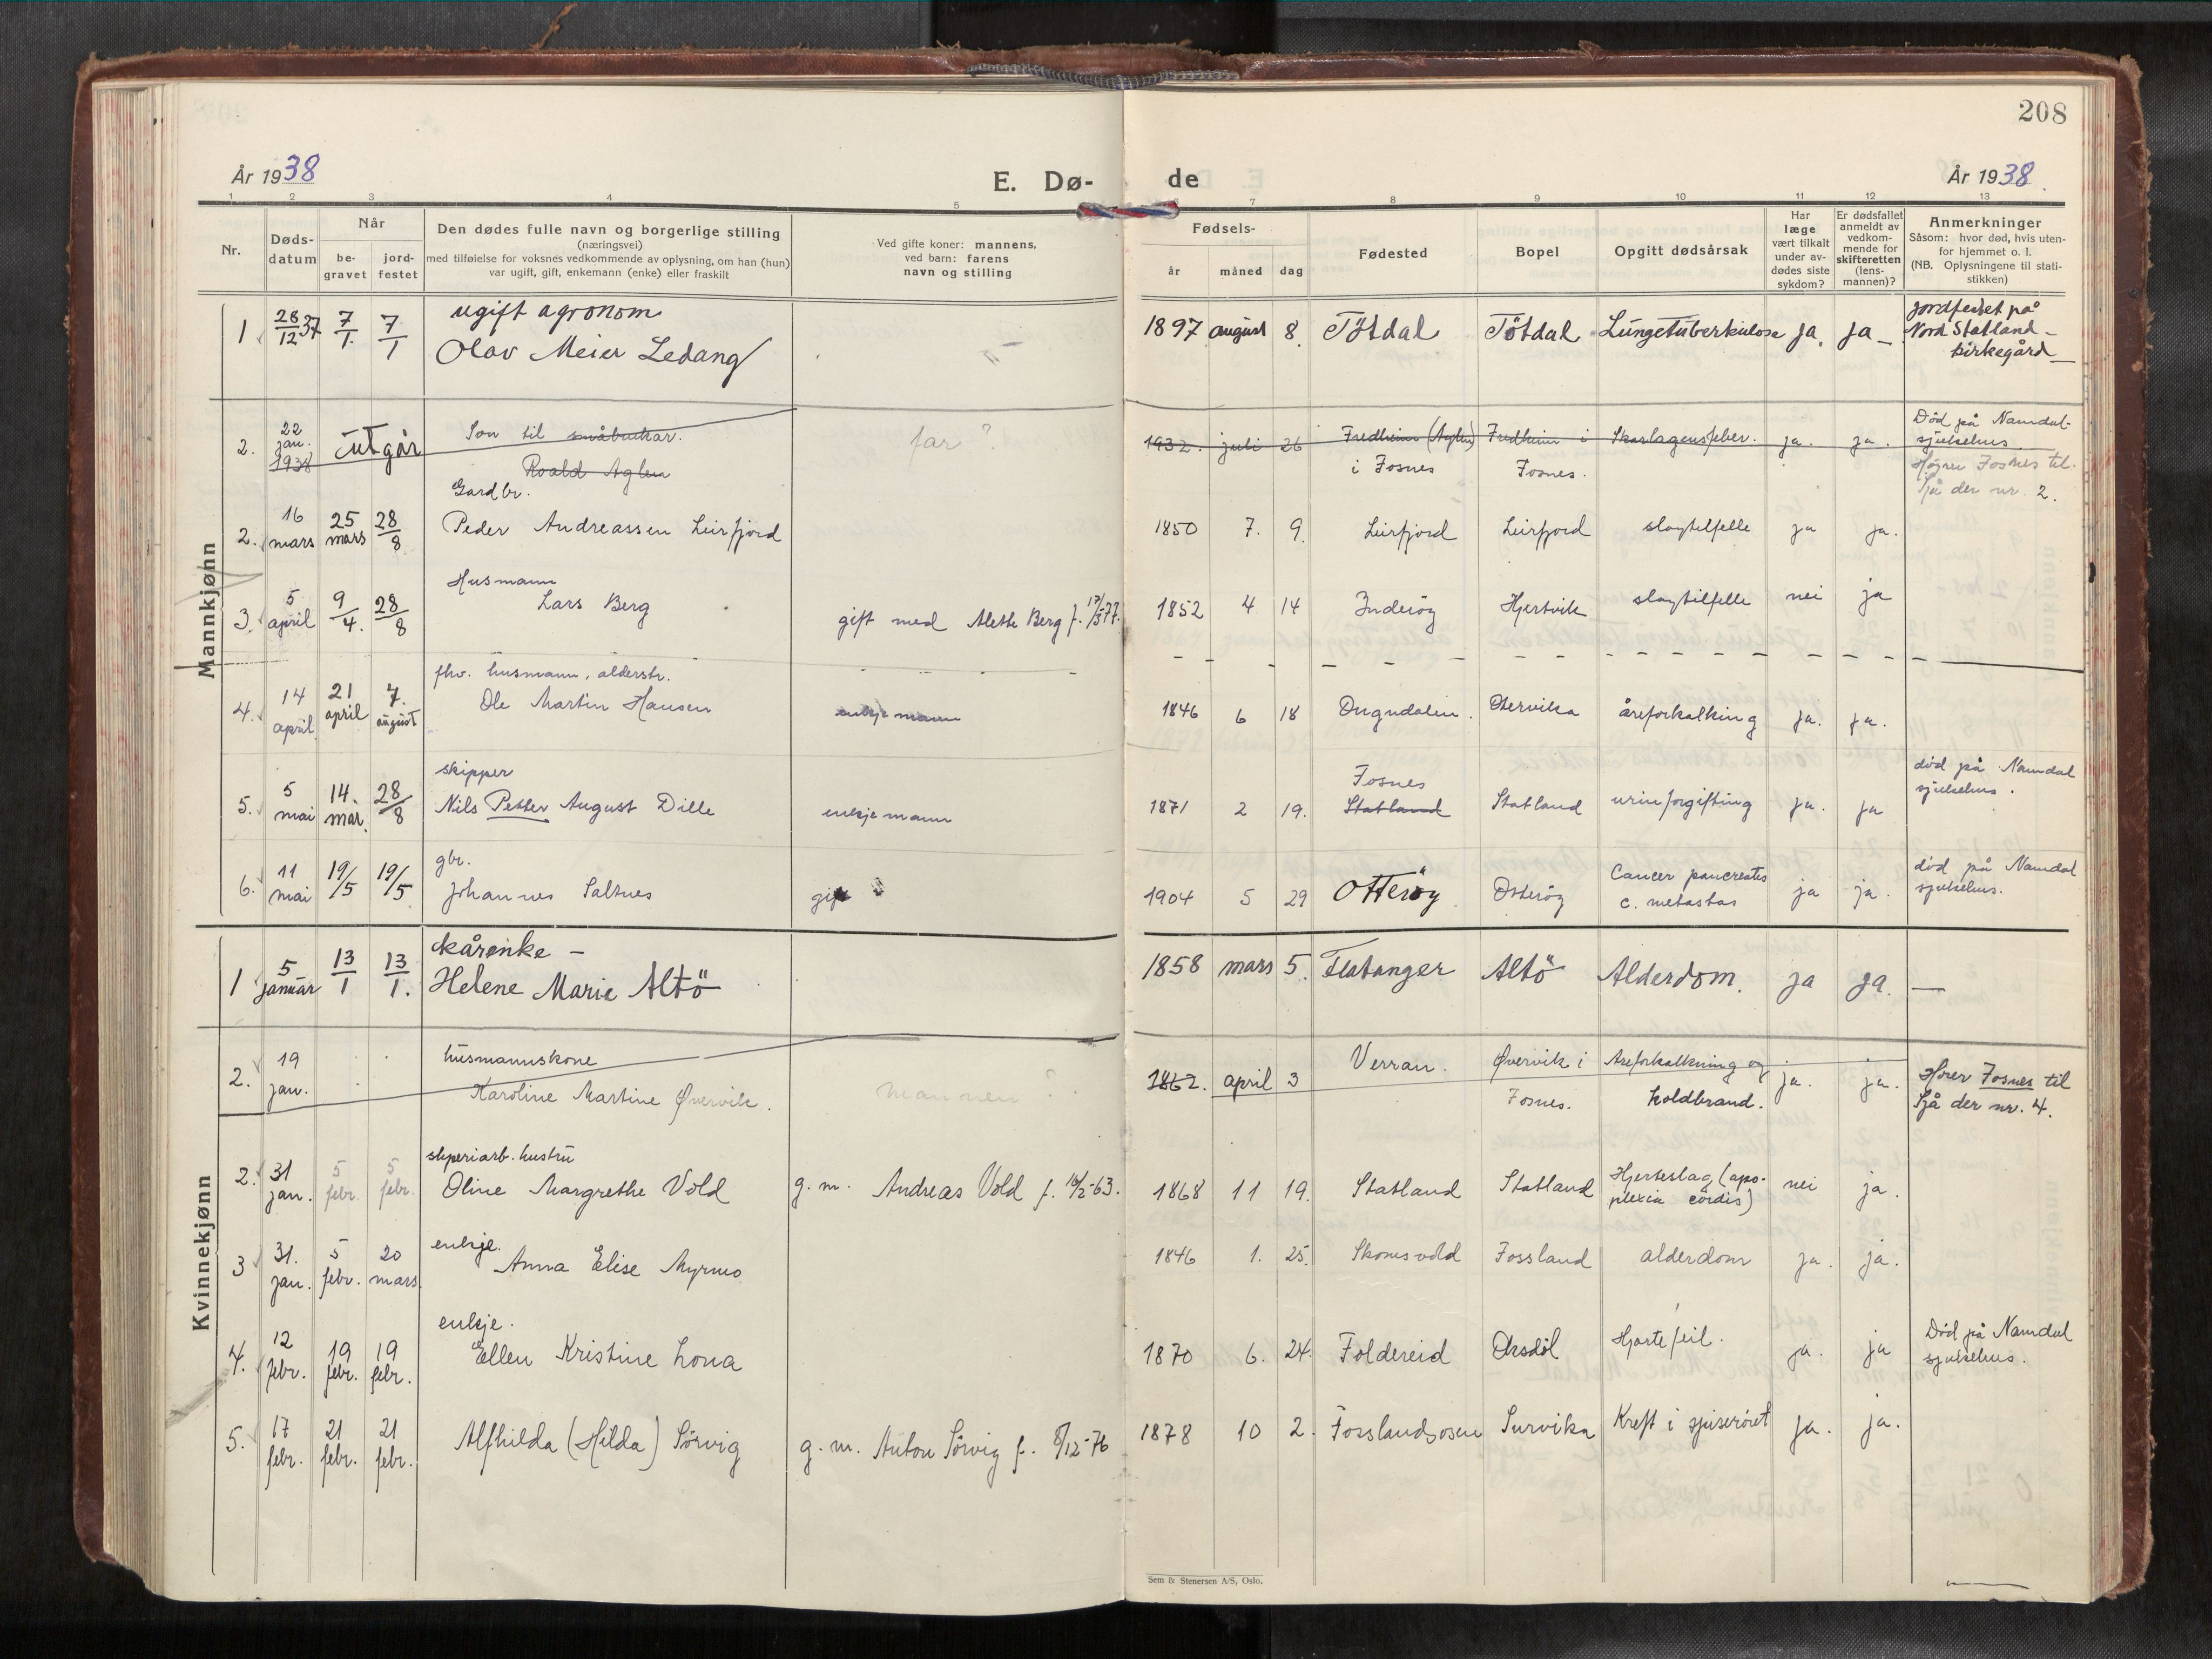 208
År 1938
E. Dø-
de
År 1938.
1 2 3 4 5 6 7 8 9 10 11 12 13
Nr.
Døds-
datum
Når
be-
gravet
jord-
festet
Den dødes fulle navn og borgerlige stilling
(næringsvei)
med tilføielse for voksnes vedkommende av oplysning, om han (hun)
var ugift, gift, enkemann (enke) eller fraskilt
Ved gifte koner: mannens,
ved barn: farens
navn og stilling
Fødsels-
år måned dag
Fødested
Bopel
Opgitt dødsårsak
Har
læge
vært tilkalt
under av-
dødes siste
sykdom?
Er dødsfallet
anmeldt av
vedkom-
mende for
skifteretten
(lens-
mannen)?
Anmerkninger
Såsom: hvor død, hvis uten-
for hjemmet o. l.
(NB. Oplysningene til stati-
stikken)
Mannkjønn
1 28/12 37 7/1. 7/1 ugift agronom
Olav Meier Ledang
1897 august 8. Tötdal Tötdal Lungetuberkulose ja. ja
Jordfestet på
Nord Statland
kirkegård
2. 22
jan.
1938
utgår
Son til småbrukar.
Roald Aglen
far?
1932. juli 26 Fredheim (Aglen)
i Fosnes
Fredheim i
Fosnes.
Skarlagensfeber. ja. ja.
Död på Namdal
sjukehus
Høyrer Fosnes til.
Sjå der nr. 2.
2. 16
mars
25
mars
28/8
Gardbr.
Peder Andreassen Leirfjord
1850 7. 9. Leirfjord Leirfjord slagtilfelle ja ja.
3. 5
april
9/4. 28/8
Husmann
Lars Berg
gift med Alette Berg f. 17/5 77.
1852 4 14 Inderöy Hjertvik slagtilfelle nei ja
4. 14
april
21
april
7.
august
fhv. husmann, alderstr.
Ole Martin Hansen
enkjemann
1846 6 18 Dugndalen. Otervika åreforkalking ja. ja.
5. 5
mai
14.
mai.
28/8
skipper
Nils Petter August Dille
enkjemann
1871 2 19. Fosnes
Statland
Statland urinforgifting ja. ja
död på Namdal
sjukehus.
6. 11
mai
19/5 19/5
gbr.
Johannes Saltnes
gift
1904 5 29 Otteröy Otteröy Cancer pancreatis
c. metastas
ja ja.
död på Namdal
sjukehus.
Kvinnekjønn
1 5
januar
13/1 13/1.
kårenke –
Helene Marie Altö
1858 mars 5. Flatanger Altö Alderdom. ja ja. —
2. 19
jan.
husmannskone
Karoline Martine Øvervik.
mannen?
1862. april 3 Verran. Øvervik i
Fosnes.
Åreforkalkning og
koldbrand.
ja. ja.
Hører Fosnes til
Sjå der nr. 4.
2. 31
jan.
5
febr.
5
febr.
sliperiarb. hustru
Oline Margrethe Vold
g. m. Andreas Vold f. 16/2-63.
1868 11 19. Statland Statland Hjerteslag (apo-
plexia cordis)
nei ja.
3 31.
jan.
5
febr.
20
mars
enkje.
Anna Elise Myrmo
1846 1. 25. Skomsvold Fossland alderdom ja. ja.
4. 12
febr.
19
febr.
19
febr.
enkje.
Ellen Kristine Lona
1870 6. 24. Foldereid Oksdöl Hjartefeil. ja. ja
Död på Namdal
sjukehus.
5. 17
febr.
21
febr.
21
febr.
Alfhilda (Hilda) Sörvig
g. m. Anton Sörvig f. 8/12-76
1878 10 2. Fosslandsosen Survika Kreft i spiseröret ja. ja.
Sem & Stenersen A/S, Oslo.